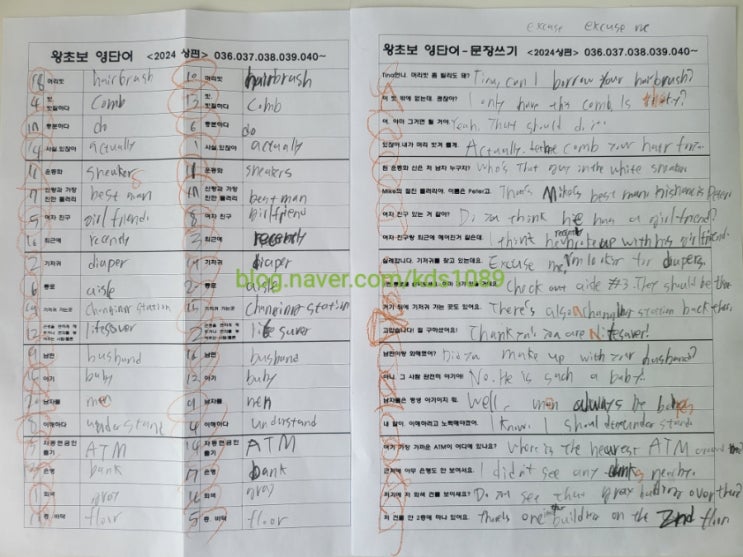 excuse excuse me
왕초보 영단어 <2024 상편> 036.037.038.039.040~
머리빗 hairbrush 머리빗 hairbrush
4 빗 빗질하다 Comb 빗 빗질하다 Comb
충분하다 do 6 충분하다 do
사실 있잖아 actually 사실 있잖아 actually
운동화 sneakers 운동화 sneakers
7 신랑과 가장 친한 들러리 best man 신랑과 가장 친한 들러리 best man
여자 친구 girlfriend 8 여자 친구 girlfriend
최근에 recently 3 최근에 recently
기저귀 diaper 기저귀 diaper
통로 aisle 통로 aisle
기저귀 가는곳 changing station 기저귀 가는곳 changing station
lifesaver life saver
남편 husband 남편 husband
아기 baby 12 아기 baby
남자들 men 남자들 men
이해하다 understand 이해하다 understand
자동현금인출기 ATM 자동현금인출기 ATM
은행 bank 은행 bank
회색 gray 회색 gray
층, 바닥 floor 5 층, 바닥 floor
왕초보 영단어 - 문장쓰기 <2024상편> 036.037.038.039.040~
Tina언니. 머리빗 좀 빌려도 돼? Tina, can I borrow your hairbrush?
이 빗 밖에 없는데. 괜찮아? I only have this comb, Is that
어. 아마 그거면 될 거야 Yeah, That should do it.
있잖아 내가 머리 빗겨 줄게. Actually. let me comb your hair
흰 운동화 신은 저 남자 누구지? Who's that guy in the white sneakers
Mike의 절친 들러리야. 이름은 Peter고. That's Mike's best man. his name is Peter.
여자 친구 있는 거 같아? Do you think he has a girlfriend?
여자 친구랑 최근에 헤어진거 같은데. I think he recently broke up with his girlfriend.
실례합니다. 기저귀를 찾고 있는데요. Excuse me, I'm looking for diapers.
Check out aisle #3. They should be there
거기 뒤에 기저귀 가는 곳도 있어요. There's also a changing station back there.
고맙습니다! 절 구하셨어요! Thank you. you are lifesaver!
남편이랑 화해했어? Did you make up with your husband?
아니. 그 사람 완전히 아기야! No. He is such a baby.
남자들은 항상 아기이지 뭐. Well, men always be babies
내 말이. 이해하려고 노력해야겠어. I know. I should understand
여기 가장 가까운 ATM이 어디에 있나요? Where is the nearest ATM around
근처에 아무 은행도 안 보여서요. I didn't see any banks nearby.
저기에 저 회색 건물 보이세요? Do you see that gray building over there?
저 건물 안 2층에 하나 있어요. There's one in the building on the 2nd floor
blog.naver.com/kds1089